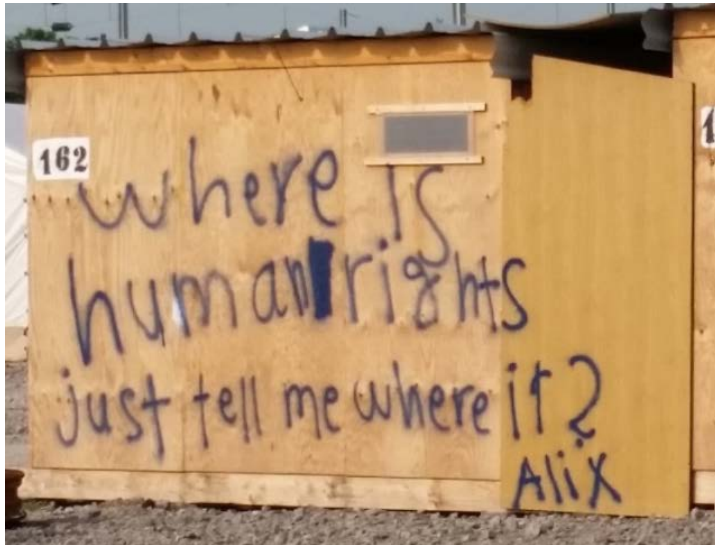 162
where is
human rights
just tell me where it?
Alix